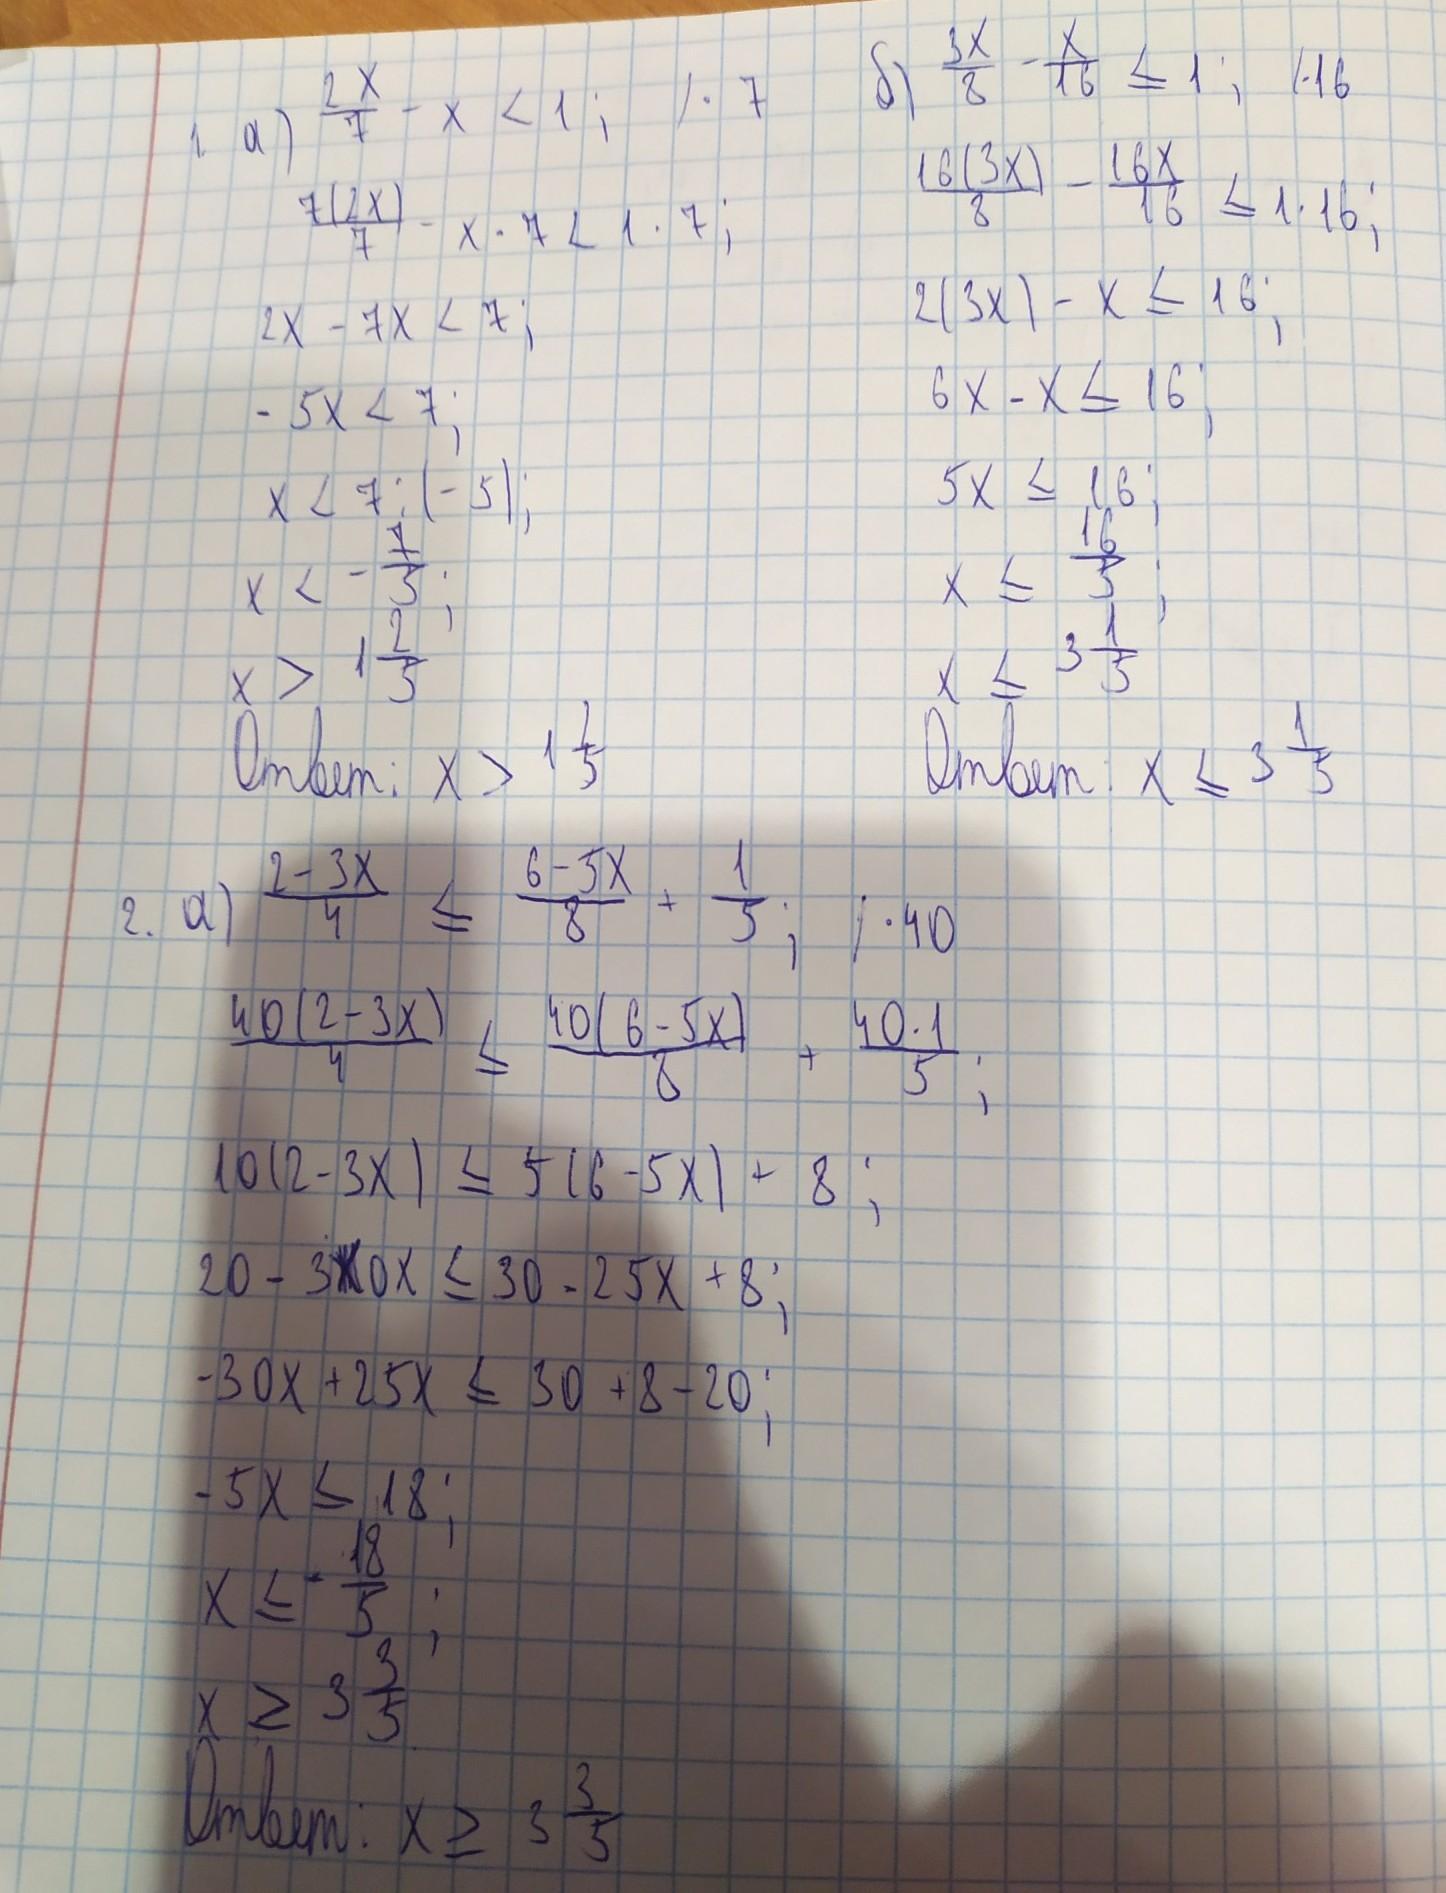 1. а) 2x/7 - x < 1; /· 7
7(2x)/7 - x · 7 < 1 · 7;
2x - 7x < 7;
- 5x < 7;
x < 7:(-5);
x < - 7/5;
x > 1 2/5
Ответ: x > 1 2/5
б) 3x/8 - x/16 ≤ 1; /·16
16(3x)/8 - 16x/16 ≤ 1·16;
2(3x) - x ≤ 16;
6x - x ≤ 16;
5x ≤ 16;
x ≤ 16/5;
x ≤ 3 1/5
Ответ: x ≤ 3 1/5
2. а) 2-3x/4 ≤ 6-5x/8 + 1/5; /·40
40(2-3x)/4 ≤ 40(6-5x)/8 + 40·1/5;
10(2-3x) ≤ 5(6-5x) + 8;
20 - 30x ≤ 30 - 25x + 8;
-30x + 25x ≤ 30 + 8 - 20;
-5x ≤ 18;
x ≤ - 18/5;
x ≥ 3 3/5
Ответ: x ≥ 3 3/5